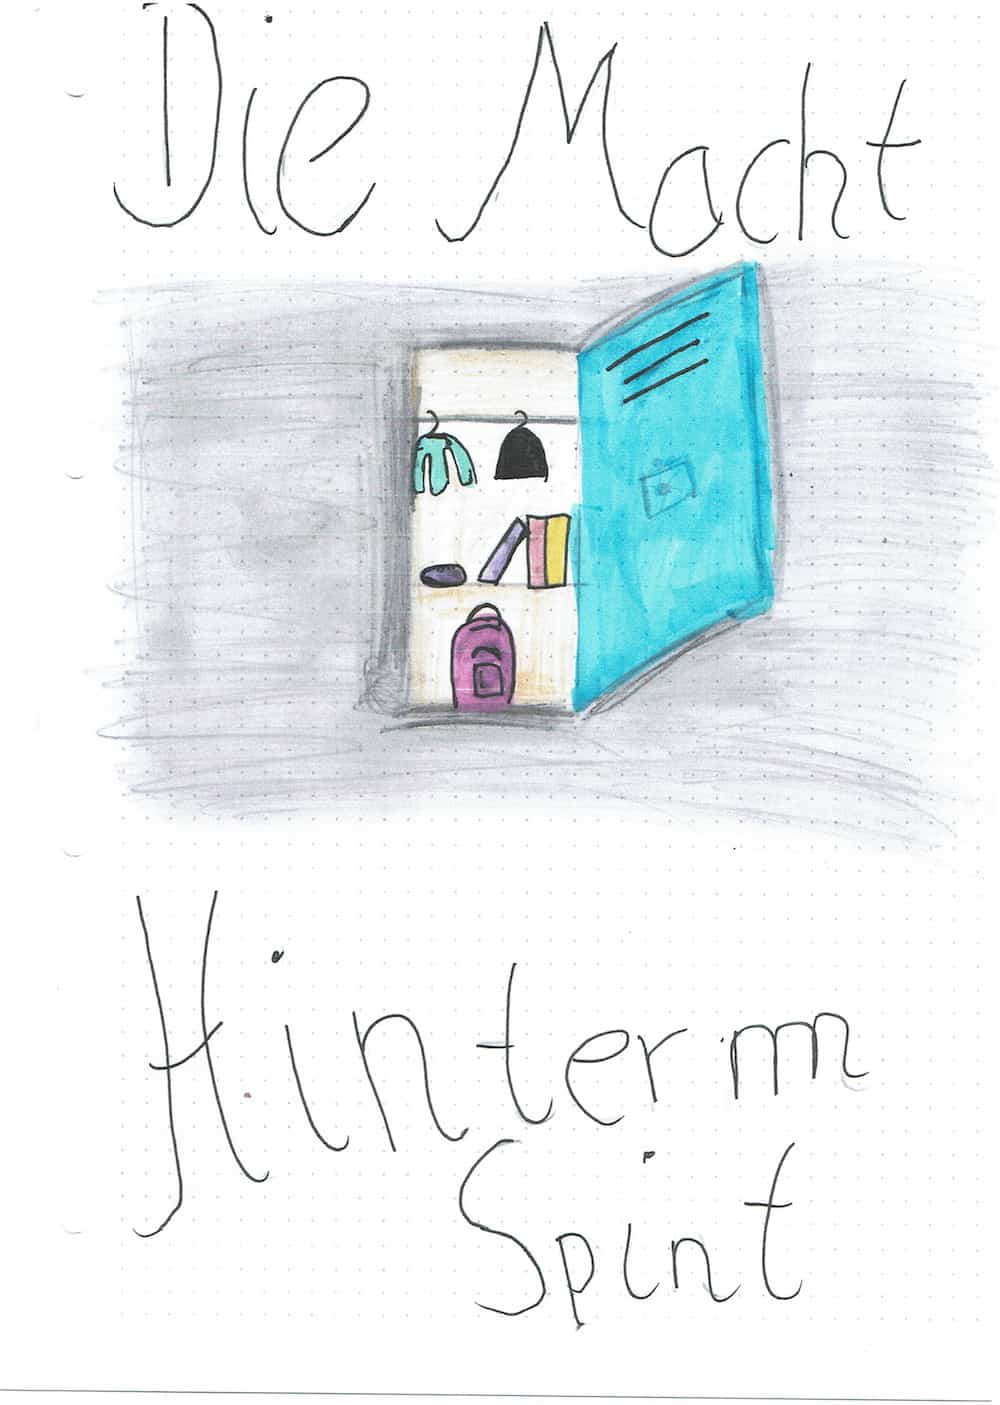 Die Macht
Hinterm
Spint